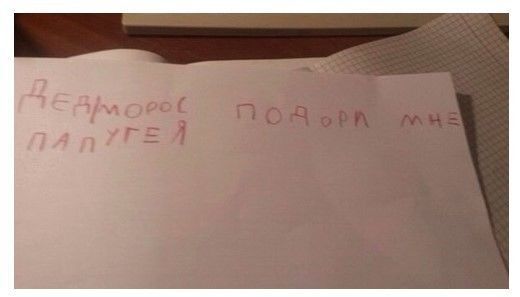 ДЕДМОРОС ПОДОРИ МНЕ
ПАПУГЕЯ